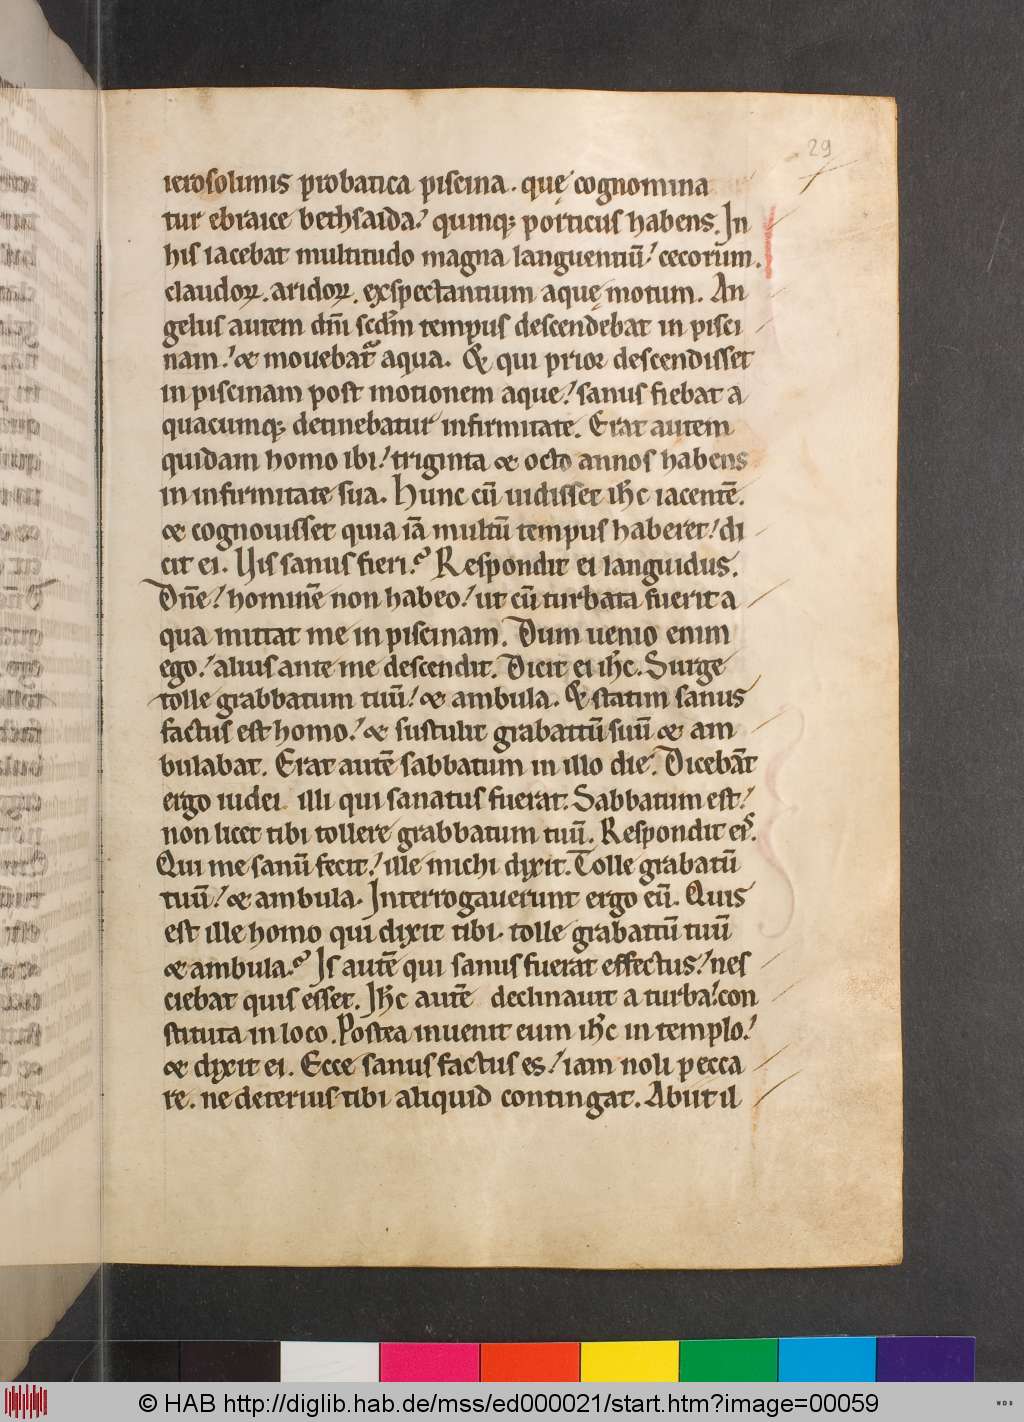 29
ierosolimis probatica piscina. quę cognomina
tur ebraice bethsaida.' quinq; porticus habens. In
his iacebat multitudo magna languentiū.' cecorum.
claudoꝝ. aridoꝝ. exspectantium aquę motum. An
gelus autem dn̄i scd̄m tempus descendebat in pisci
nam.' & mouebat᷑ aqua. & qui prior descendisset
in piscinam post motionem aque.' sanus fiebat a
quacumq; detinebatur infirmitate. Erat autem
quidam homo ibi.' triginta & octo annos habens
in infirmitate sua. Hunc cū uidisset ih̄c iacentē.
& cognouisset quia iā multū tempus haberet.' di
cit ei. Vis sanus fieri.? Respondit ei languidus.
Dn̄e.' hominē non habeo.' ut cū turbata fuerit a
qua mittat me in piscinam. Dum uenio enim
ego.' alius ante me descendit. Dicit ei ih̄c. Surge
tolle grabbatum tuū.' & ambula. & statim sanus
factus est homo.' & sustulit grabattū suū & am
bulabat. Erat autē sabbatum in illo die. Dicebāt
ergo iudei illi qui sanatus fuerat. Sabbatum est.'
non licet tibi tollere grabbatum tuū. Respondit eis.
Qui me sanū fecit.' ille michi dixit. Tolle grabatū
tuū.' & ambula. Interrogauerunt ergo eū. Quis
est ille homo qui dixit tibi. tolle grabattū tuū
& ambula.? Is autē qui sanus fuerat effectus.' nes
ciebat quis esset. Ih̄c autē declinauit a turba.' con
stituta in loco. Postea inuenit eum ih̄c in templo.'
& dixit ei. Ecce sanus factus es.' iam noli pecca
re. ne deterius tibi aliquid contingat. Abiit il
© HAB http://diglib.hab.de/mss/ed000021/start.htm?image=00059